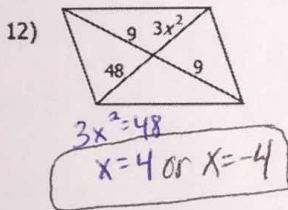 12)
9 3x²
48 9
3x²=48
x=4 or x=-4